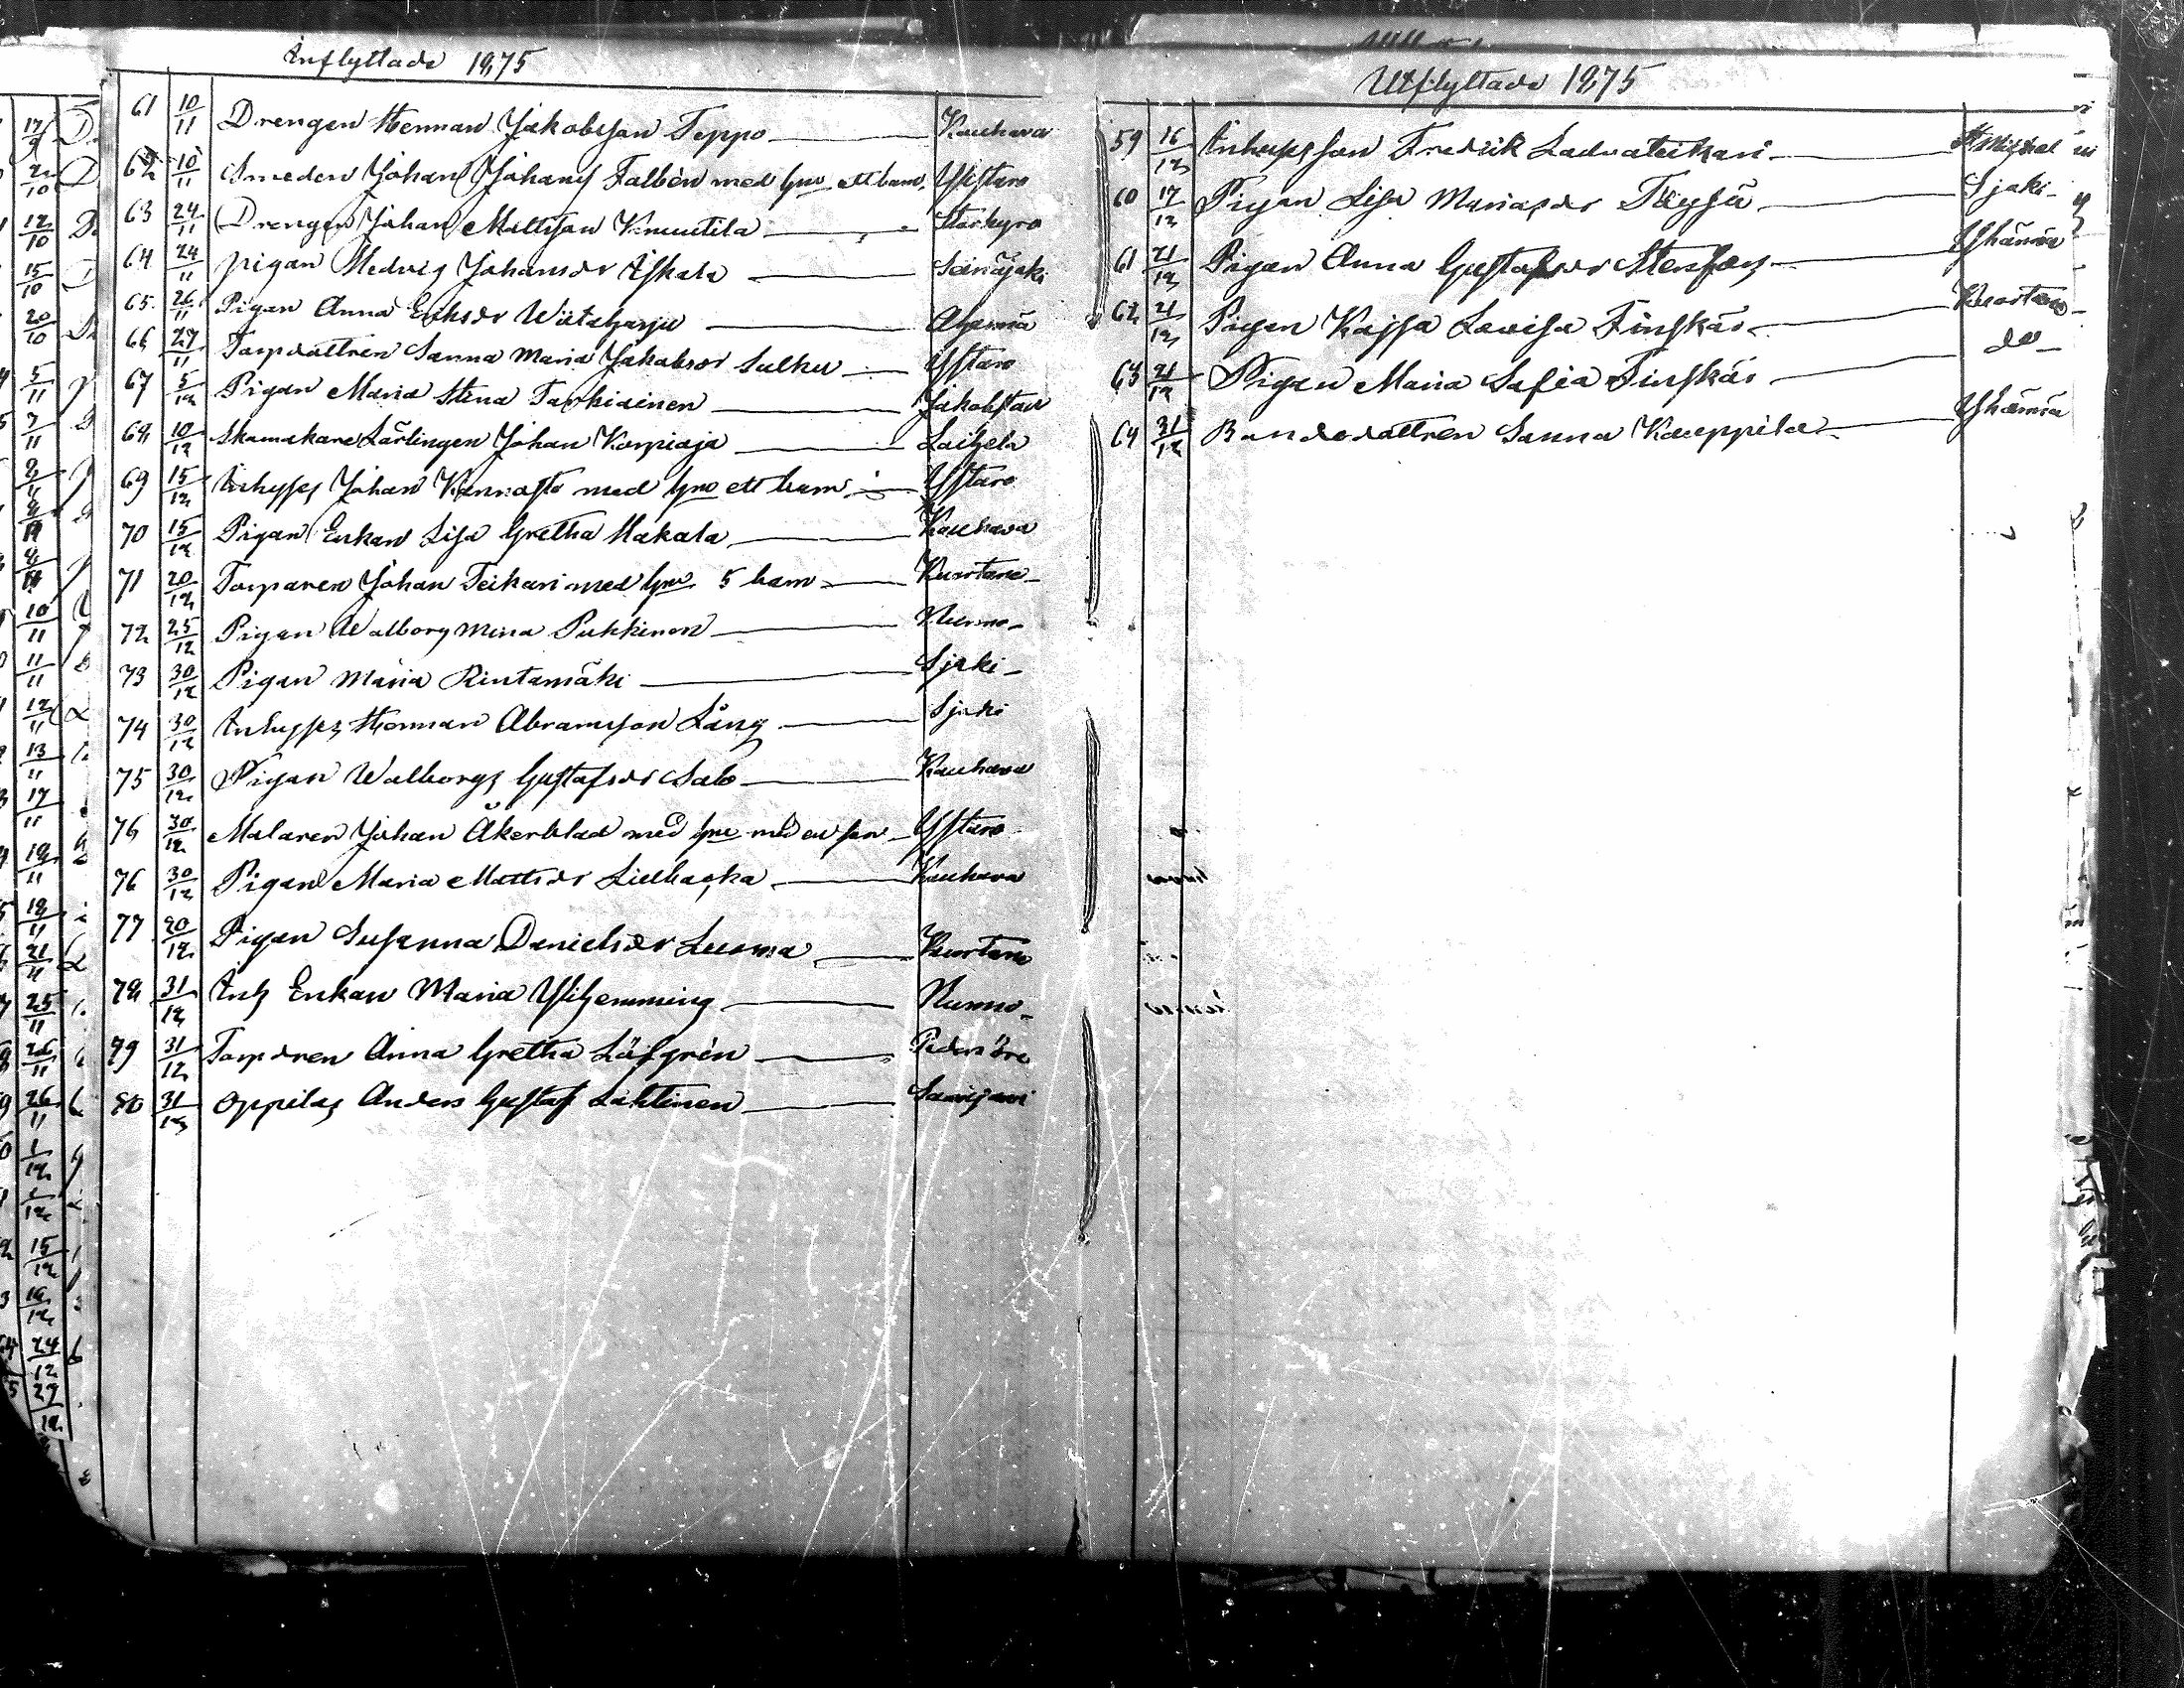 Inflyttade 1875
61 10/11 Drengen Herman Jakobsson Teppo Kauhava
62 10/11 Smeden Johan Johans Falbèn med hru ett barn Ylistaro
63 24/11 Drengen Johan Mattsson Knuutila Storkyro
64 24/11 pigan Hedvig Johansdr Yskala Seinäjoki
65 26/11 Pigan Anna Eriksdr Wiitaharju Alajärvi
66 27/11 Torpdottren Sanna Maria Jakobsdr Sulku Ylistaro
67 5/12 Pigan Maria Stina Tarkiainen Jakobstad
68 10/12 Skomakare Lärlingen Johan Korpioja Laihela
69 15/12 Inhyses Johan Kannasto med hru ett barn Ylistaro
70 15/12 Pigan Enkan Lisa Gretha Makala Kauhava
71 20/12 Torparen Johan Teikari med hru 5 barn Kuortane
72 25/12 Pigan Walborg Mina Pukkinen Nurmo
73 30/12 Pigan Maria Rintamäki Sjoki
74 30/12 Inhyses Herman Abramsson Lång Sjoki
75 30/12 Pigan Walborg Gustafsdr Salo Kauhava
76 30/12 Målaren Johan Åkerblad med hru med en son Ylistaro
76 30/12 Pigan Maria Mattsdr Liebacka Kauhava
77 30/12 Pigan Susanna Danielsdr Luoma Kuortane
78 31/12 Inh Enkan Maria Ylihemming Nurmo
79 31/12 Torpdren Anna Gretha Löfgrèn Pedersöre
80 31/12 Oppilas Anders Gustaf Lahtinen Saarijärvi
Utflyttade 1875
59 16/12 Inhysesson Fredrik Ladvateikari St Michel
60 17/12 Pigan Lisa Mariasdr Töysä Sjoki
61 21/12 Pigan Anna Gustafsdr Stenfors Yhärmä
62 21/12 Pigan Kajsa Lovisa Finskäs Kuortane
63 21/12 Pigan Maria Sofia Finskäs do
64 31/12 Bondedottren Sanna Kauppila Yhärmä